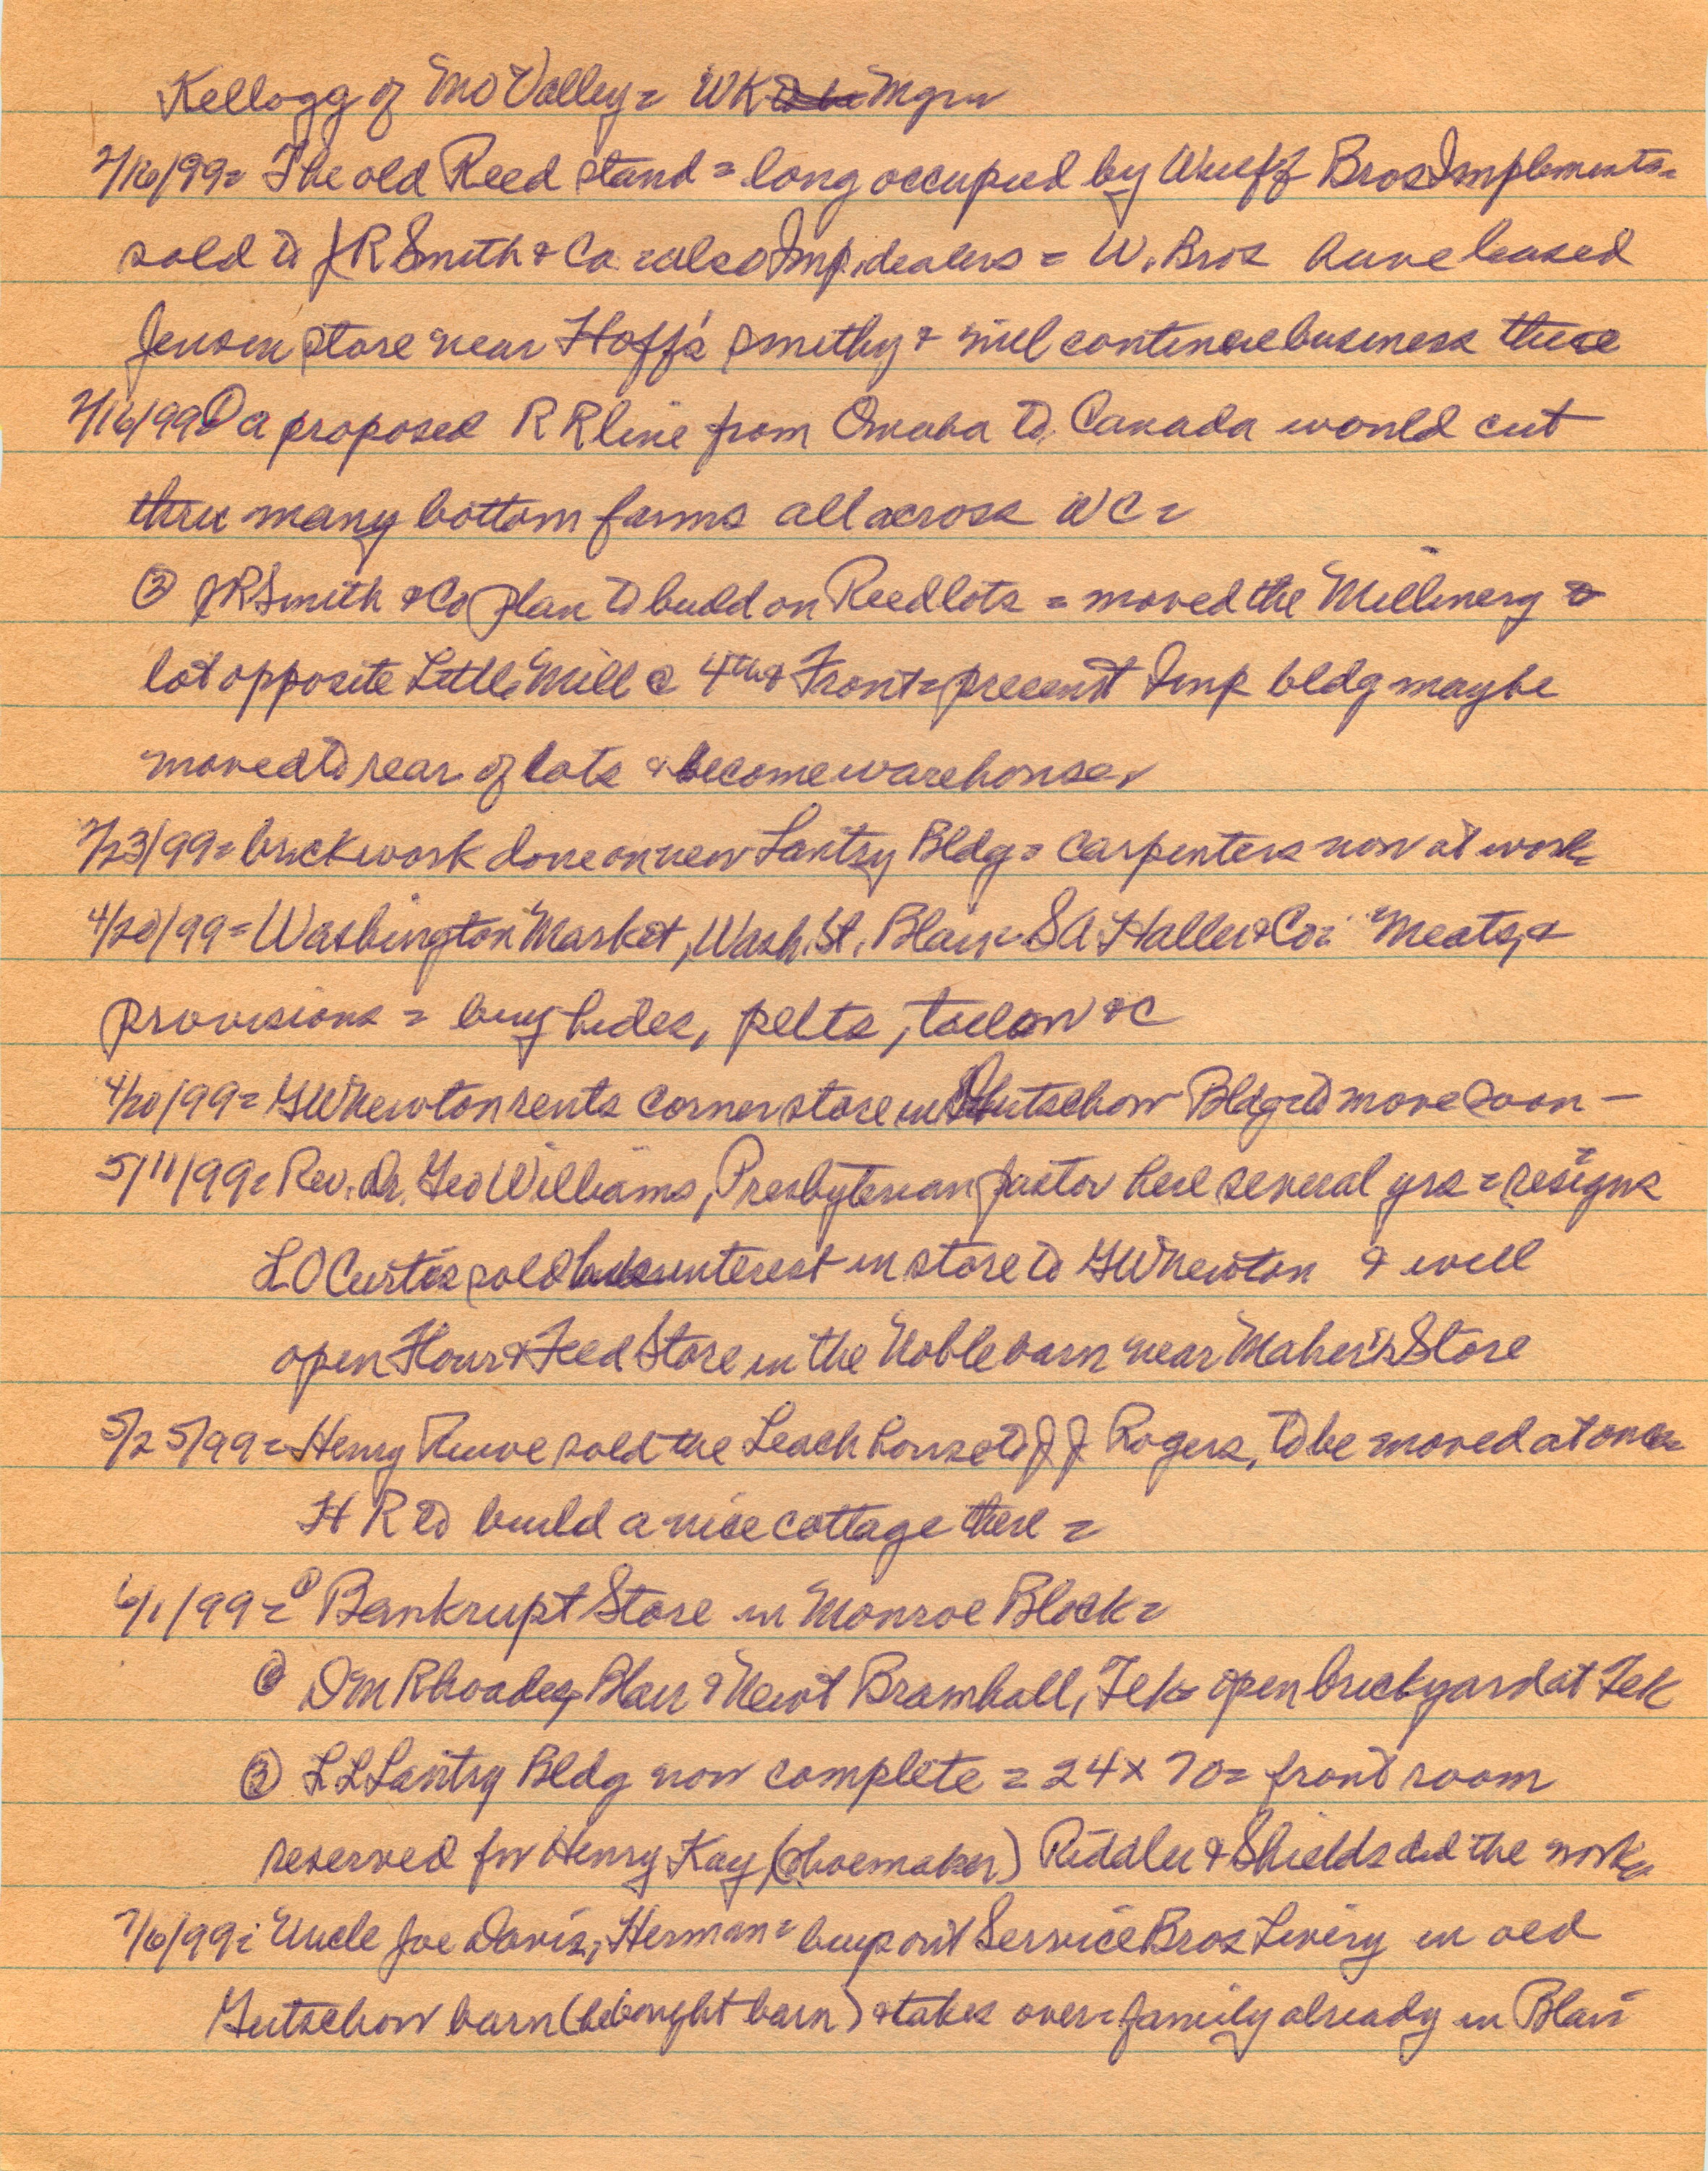 Kellogg of Mo Valley = WK Mgr =
2/16/99 = The old Reed stand = long occupied by Wulff Bros Implements =
sold to JR Smith & Co = also Imp. dealers = W. Bros have leased
Jensen store near Hoff's smithy & will continue business there
2/16/99 ① a proposed RR line from Omaha to Canada would cut
thru many bottom farms all across WC =
② JR Smith & Co plan to build on Reed lots = moved the Millinery to
lot opposite Little Mill @ 4th & Front = present Imp bldg may be
moved to rear of lots & become warehouse =
2/23/99 = brickwork done on new Lantry Bldg = carpenters now at work =
4/20/99 = Washington Market, Wash. St. Blair = SA Haller & Co = Meats, &
provisions = buy hides, pelts, tallow &c
4/20/99 = GW Newton rents corner store in Gutschow Bldg = to move soon —
5/11/99 = Rev. Dr. Geo Williams, Presbyterian pastor here several yrs = resigns =
LO Curtis sold his interest in store to GW Newton & will
open Flour & Feed Store in the Noble barn near Maher's Store
5/25/99 = Henry Ruwe sold the Leach house to J J Rogers, to be moved at once =
H R to build a nice cottage there =
6/1/99 = ① Bankrupt Store in Monroe Block =
② DM Rhoades, Blair & Newt Bramhall, Tek = open brickyard at Tek
③ L L Lantry Bldg now complete = 24 x 70 = front room
reserved for Henry Kay (shoemaker) Riddler & Shields did the work =
7/6/99 = Uncle Joe Davis, Herman = buys out Service Bros Livery in old
Gutschow barn (he bought barn) & takes over = family already in Blair